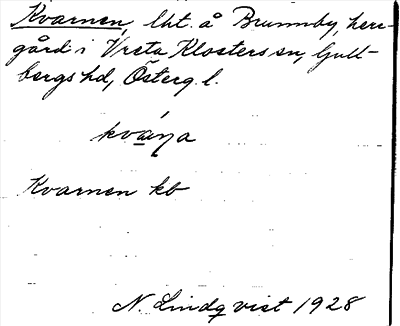 Kvarnen, lht. å Brunnby, herr-
gård i Vreta Klosters sn, Gull-
bergs hd, Österg. l.
kváṇa
Kvarnen kb
N. Lindqvist 1928